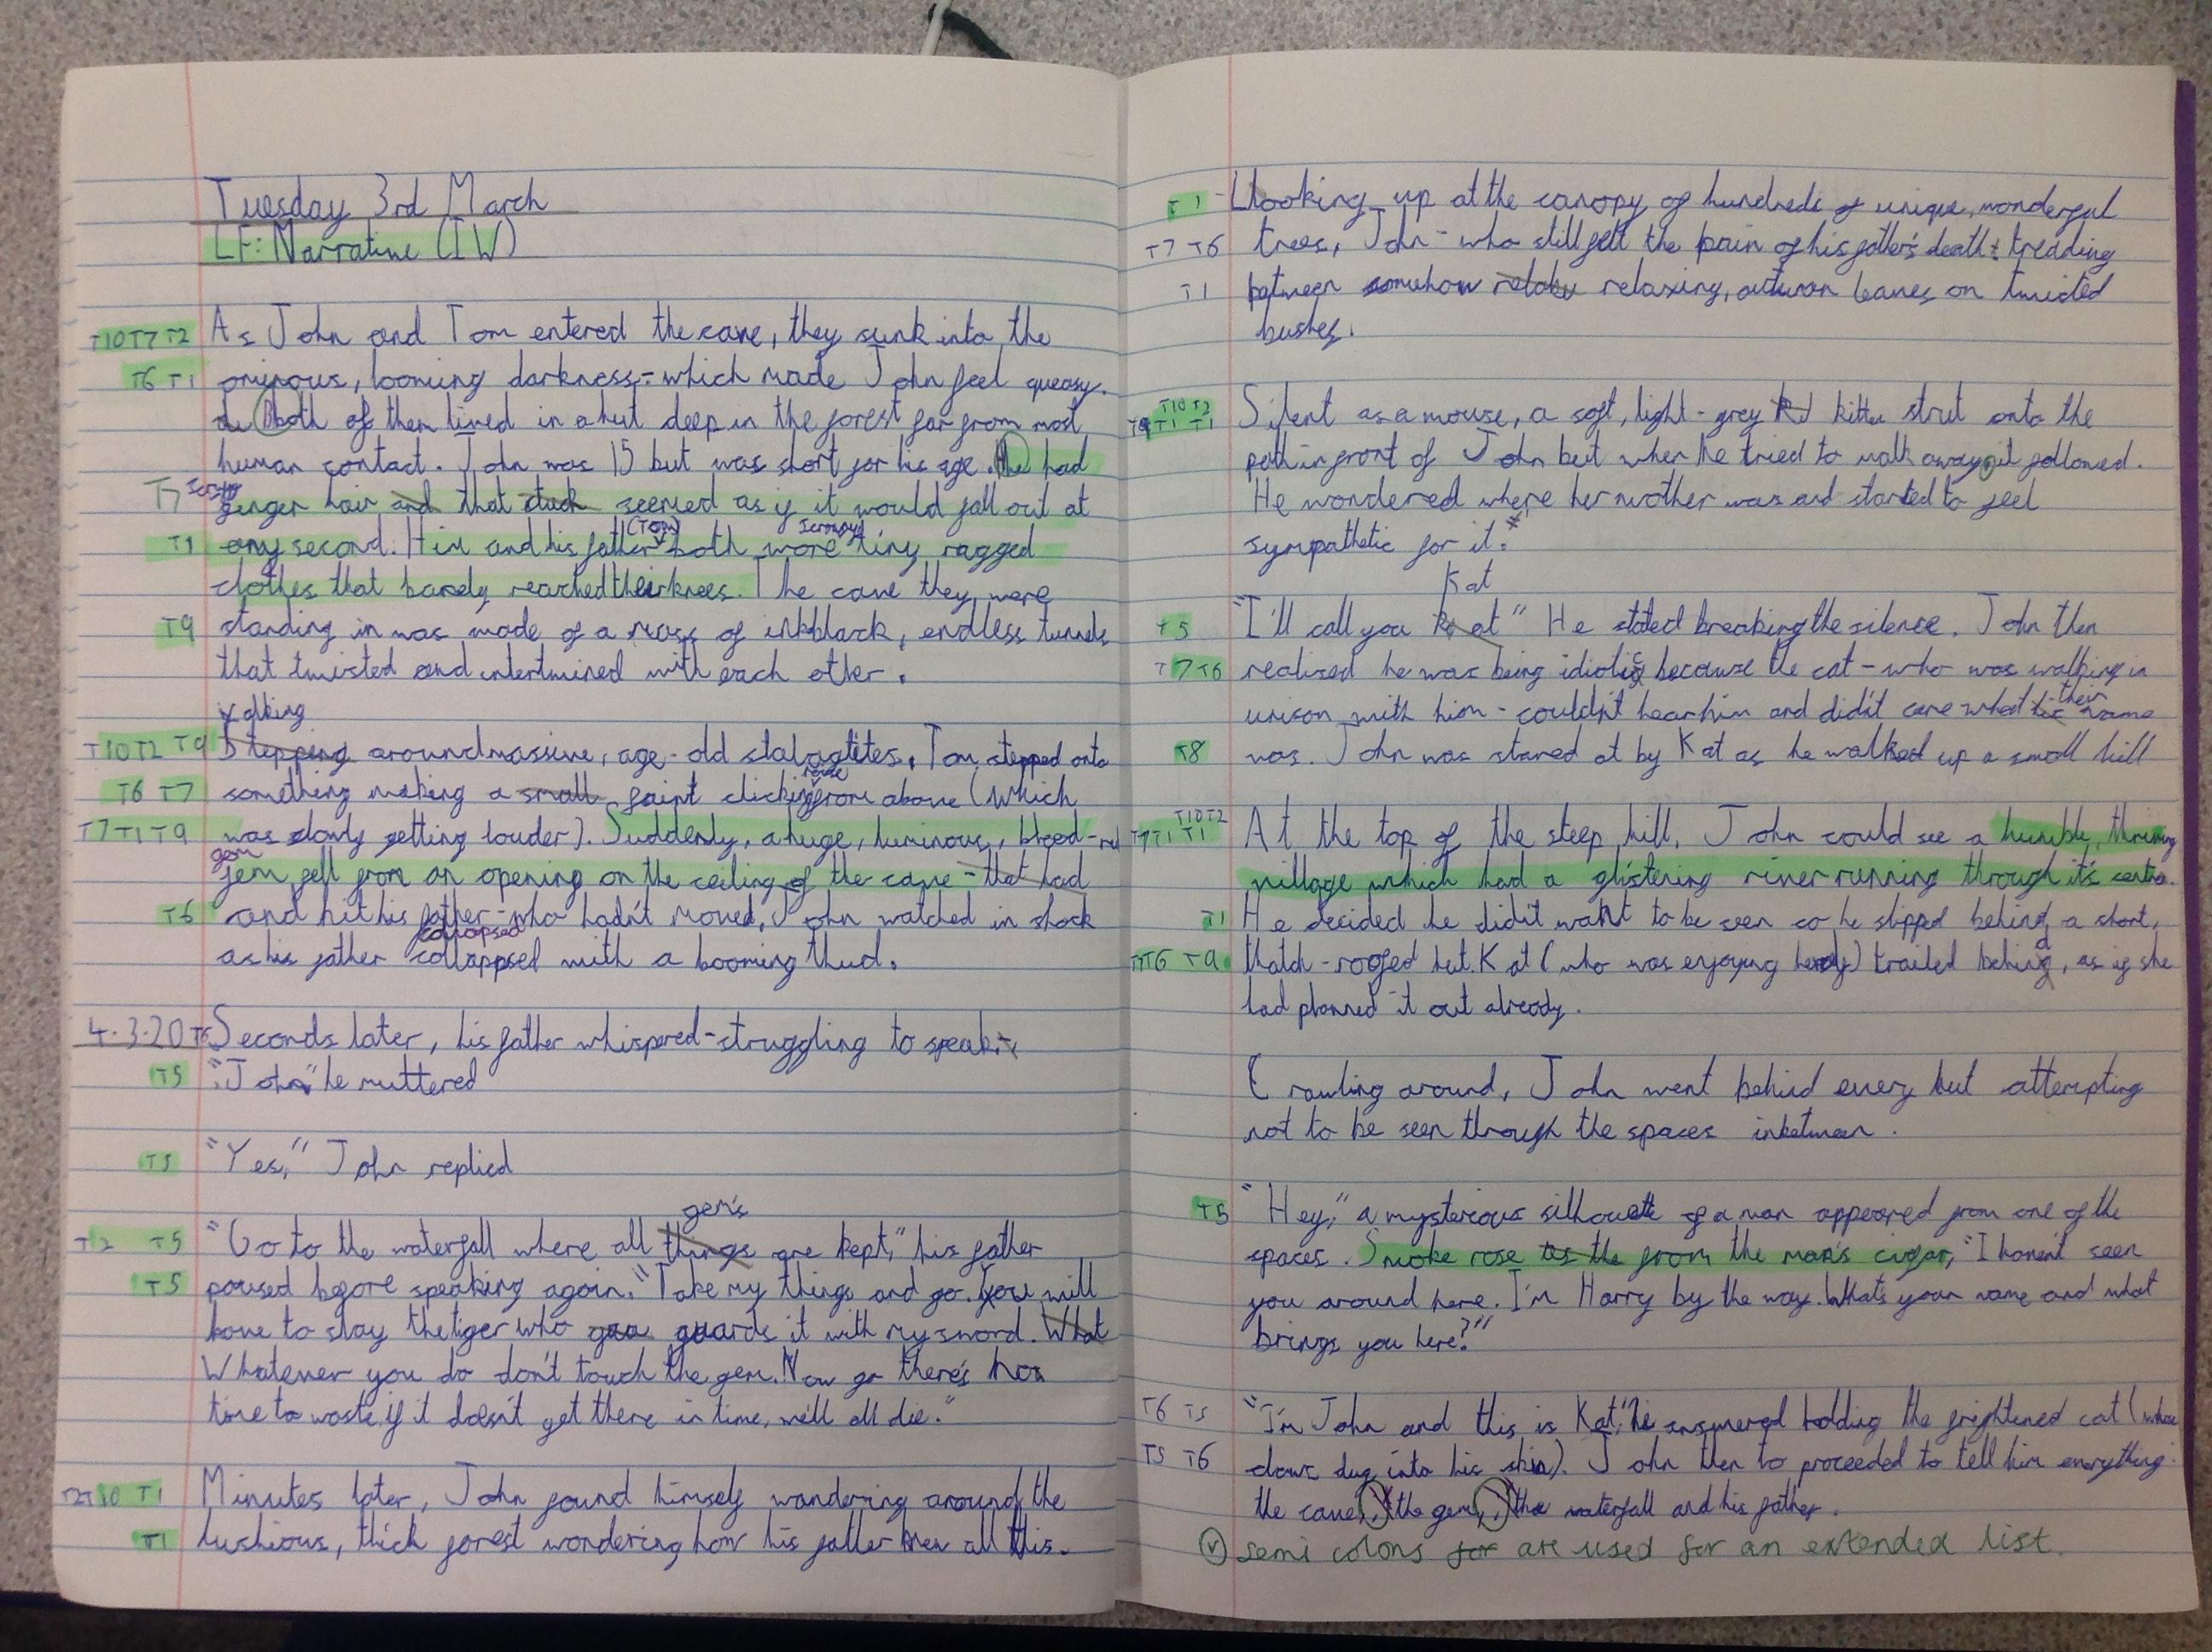 Tuesday 3rd March
LF: Narrative (IW)
T10 T7 T2 As John and Tom entered the cave, they sunk into the
T6 T1 ominous, looming darkness - which made John feel queasy.
Both of them lived in a hut deep in the forest far from most
human contact. John was 15 but was short for his age. He had
T7 ginger hair and that stuck seemed as if it would fall out at
T1 any second. Him and his father (Tom) both wore tiny ragged
clothes that barely reached their knees. The cave they were
T9 standing in was made of a mass of inkblack, endless tunnels
that twisted and intertwined with each other.
Walking
T10 T2 T9 Stepping around massive, age-old stalagtites, Tom stepped onto
noise
T6 T7 something making a small faint clicking from above (which
T7 T1 T9 was slowly getting louder). Suddenly, a huge, luminous, blood-red
gem
jem fell from an opening on the ceiling of the cave - that had
T6 and hit his father - who hadn't moved, John watched in shock
collapsed
as his father collappsed with a booming thud.
4.3.20 T5 Seconds later, his father whispered - struggling to speak.
T5 "John" he muttered
T5 "Yes," John replied
gem's
T2 T5 "Go to the waterfall where all things are kept," his father
T5 paused before speaking again. "Take my things and go. You will
have to slay the tiger who gua guards it with my sword. What
Whatever you do don't touch the gem. Now go there's no
time to waste, if it doesn't get there in time, we'll all die."
T2 T10 T1 Minutes later, John found himself wandering around the
T1 lushious, thick forest wondering how his father knew all this.
T1 - Looking up at the canopy of hundreds of unique, wonderful
T7 T6 trees, John - who still felt the pain of his father's death - treading
T1 between somehow relaxing, autumn leaves on twisted
bushes.
T10 T2
T9 T1 T1 Silent as a mouse, a soft, light-grey kitten strut onto the
path in front of John but when he tried to walk away, it followed.
He wondered where her mother was and started to feel
sympathetic for it.
Kat
T5 "I'll call you Kat" He stated breaking the silence. John then
T7 T6 realised he was being idiotic because the cat - who was walking in
unison with him - couldn't hear him and didn't care what their name
T8 was. John was stared at by Kat as he walked up a small hill
T10 T2
T7 T1 T1 At the top of the steep hill, John could see a humble, thriving
village which had a glistening river running through it's centre.
T1 He decided he didn't want to be seen so he slipped behind a short,
T6 T9 thatch-roofed hut. Kat (who was enjoying herself) trailed behind, as if she
had planned it out already.
Crawling around, John went behind every hut attempting
not to be seen through the spaces inbetween.
T5 "Hey," a mysterious silhouette of a man appeared from one of the
spaces. Smoke rose as the from the man's cigar, "I haven't seen
you around here. I'm Harry by the way. What's your name and what
brings you here?"
T6 T5 "I'm John and this is Kat," he answered holding the frightened cat (whose
T5 T6 claws dug into his skin). John then to proceeded to tell him everything:
the cave, the gem, the waterfall and his father.
V semi colons for are used for an extended list.